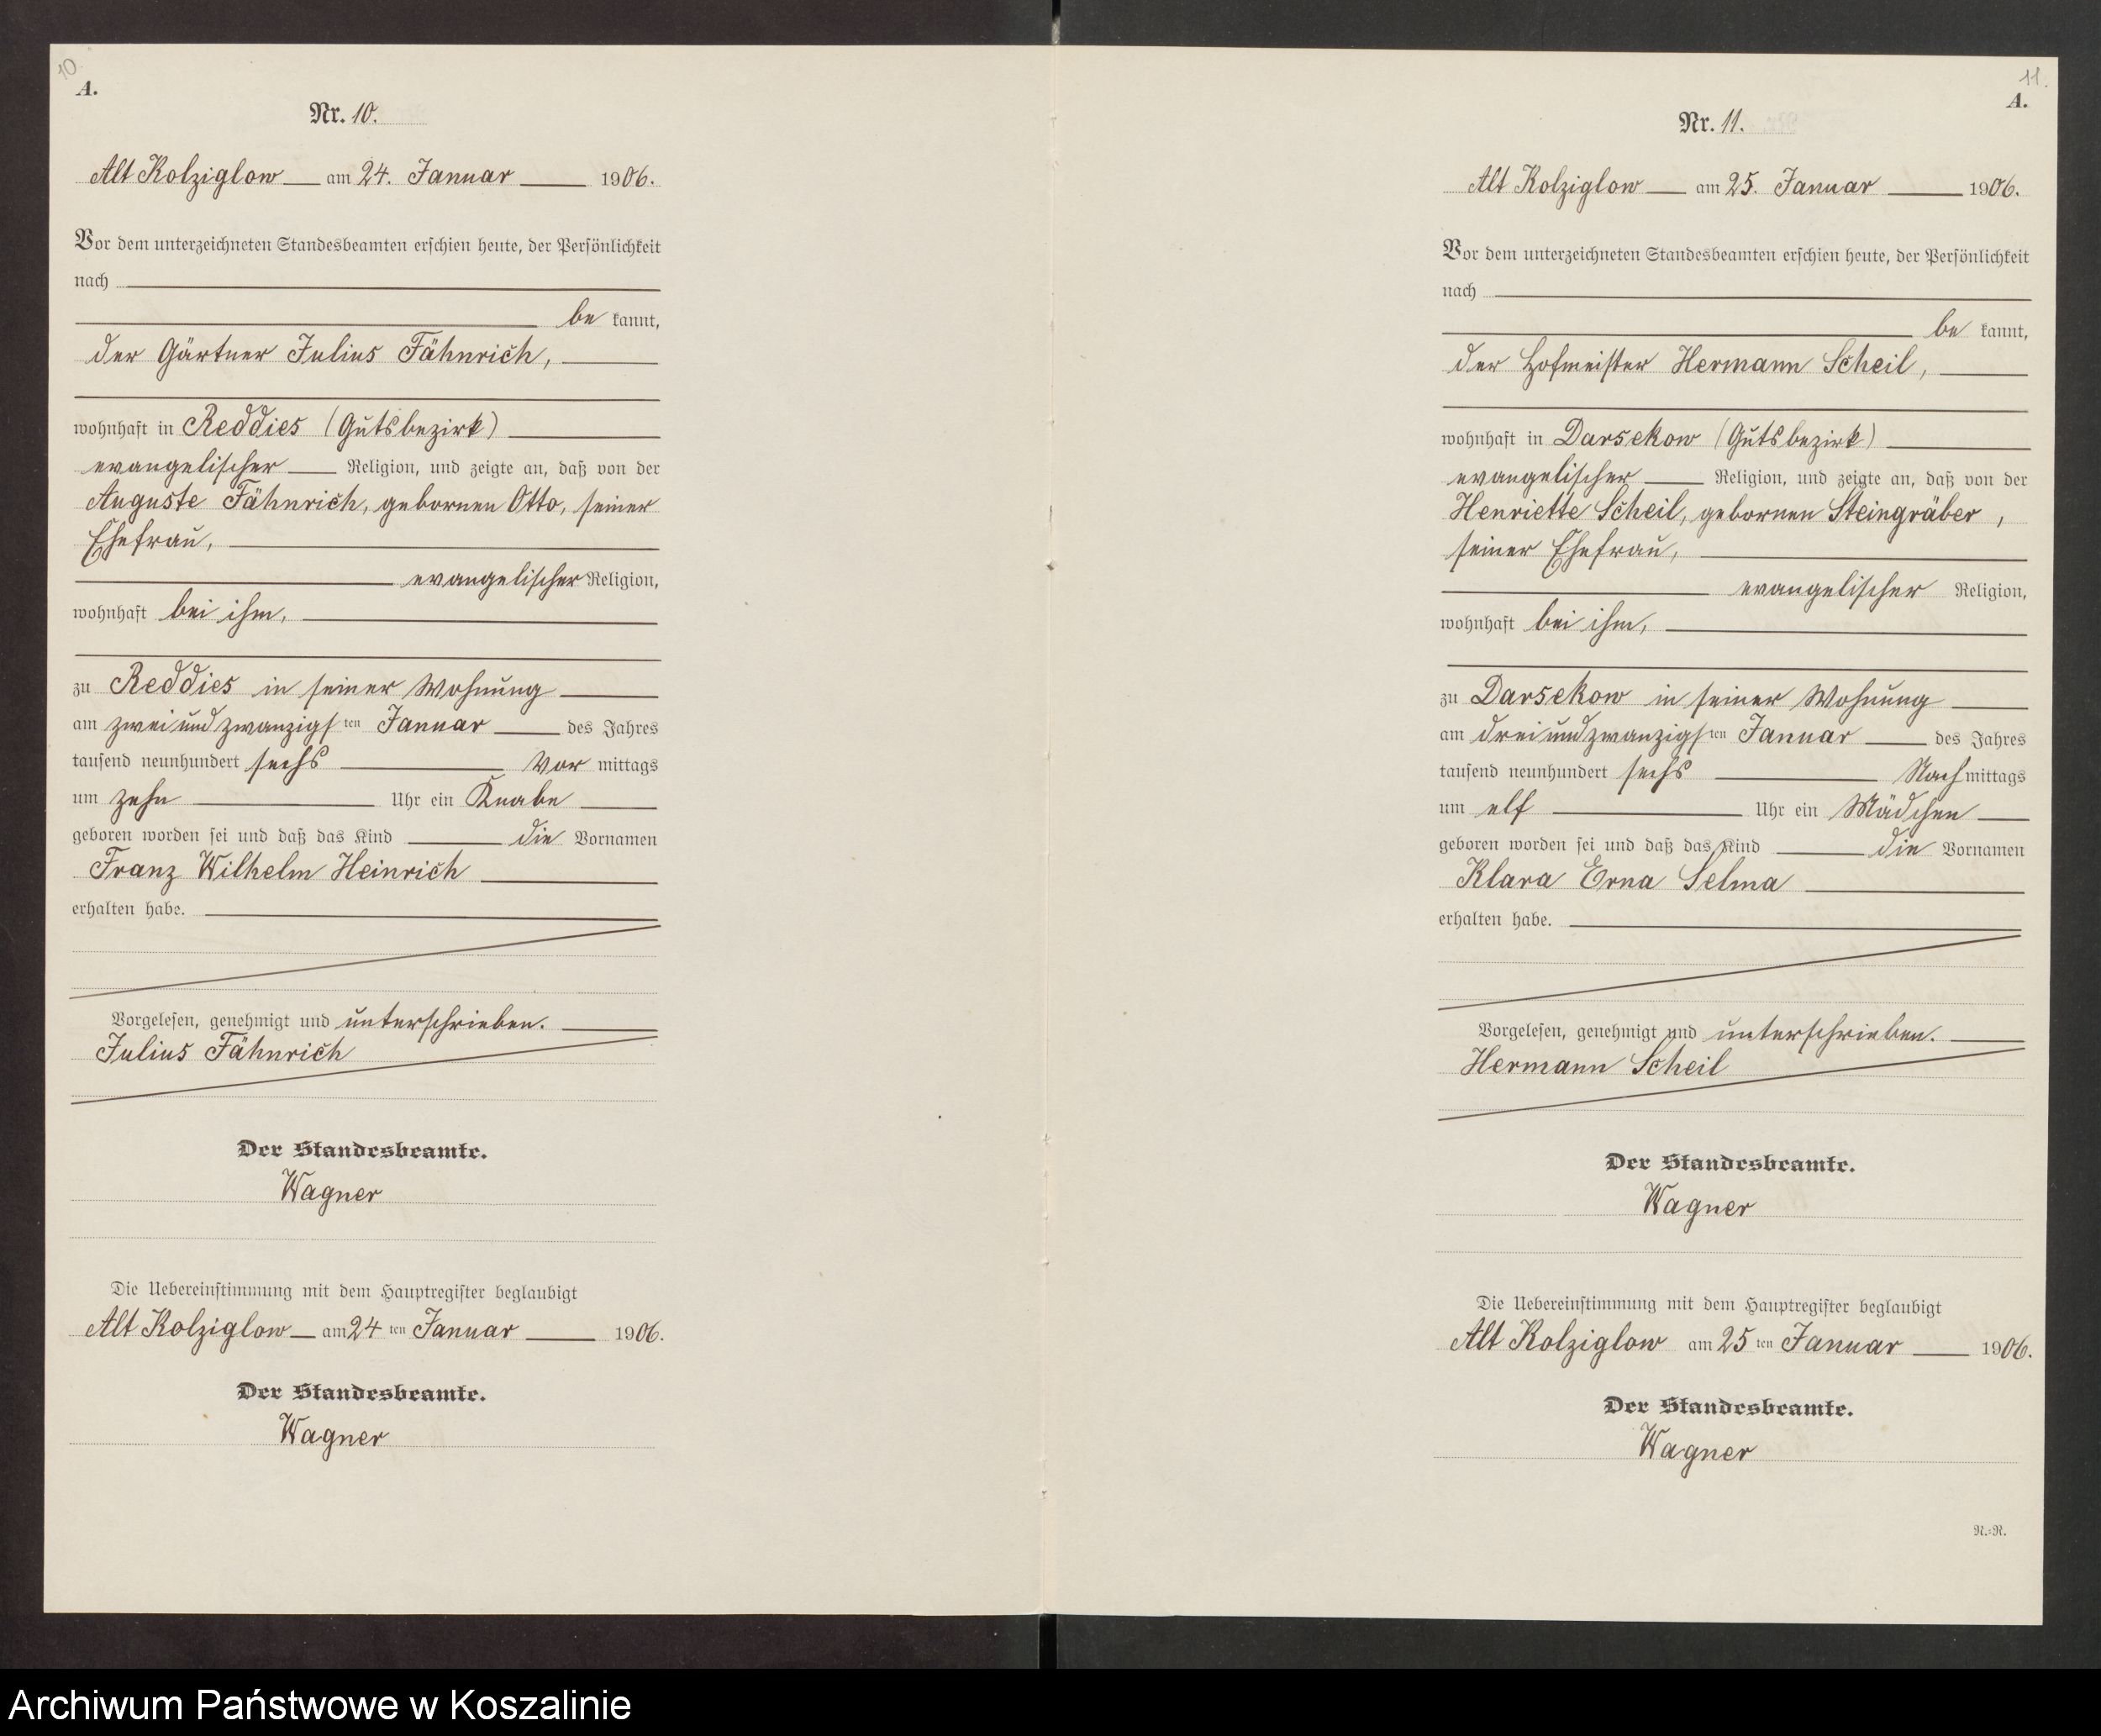 10
A.
Nr. 10.
Alt Kolziglow am 24. Januar 1906.
Vor dem unterzeichneten Standesbeamten erschien heute, der Persönlichkeit
nach
be kannt,
der Gärtner Julius Fähnrich,
wohnhaft in Reddies (Gutsbezirk)
evangelischer Religion, und zeigte an, daß von der
Auguste Fähnrich, gebornen Otto, seiner
Ehefrau,
evangelischer Religion,
wohnhaft bei ihm,
zu Reddies in seiner Wohnung
am zwei und zwanzigsten Januar des Jahres
tausend neunhundert sechs Vor mittags
um zehn Uhr ein Knabe
geboren worden sei und daß das Kind die Vornamen
Franz Wilhelm Heinrich
erhalten habe.
Vorgelesen, genehmigt und unterschrieben.
Julius Fähnrich
Der Standesbeamte.
Wagner
Die Uebereinstimmung mit dem Hauptregister beglaubigt
Alt Kolziglow am 24 ten Januar 1906.
Der Standesbeamte.
Wagner
11.
A.
Nr. 11.
Alt Kolziglow am 25. Januar 1906.
Vor dem unterzeichneten Standesbeamten erschien heute, der Persönlichkeit
nach
be kannt,
der Hofmeister Hermann Scheil,
wohnhaft in Darsekow (Gutsbezirk)
evangelischer Religion, und zeigte an, daß von der
Henriette Scheil, gebornen Steingräber,
seiner Ehefrau,
evangelischer Religion,
wohnhaft bei ihm,
zu Darsekow in seiner Wohnung
am drei und zwanzigsten Januar des Jahres
tausend neunhundert sechs Nach mittags
um elf Uhr ein Mädchen
geboren worden sei und daß das Kind die Vornamen
Klara Erna Selma
erhalten habe.
Vorgelesen, genehmigt und unterschrieben.
Hermann Scheil
Der Standesbeamte.
Wagner
Die Uebereinstimmung mit dem Hauptregister beglaubigt
Alt Kolziglow am 25 ten Januar 1906.
Der Standesbeamte.
Wagner
N.-R.
Archiwum Państwowe w Koszalinie